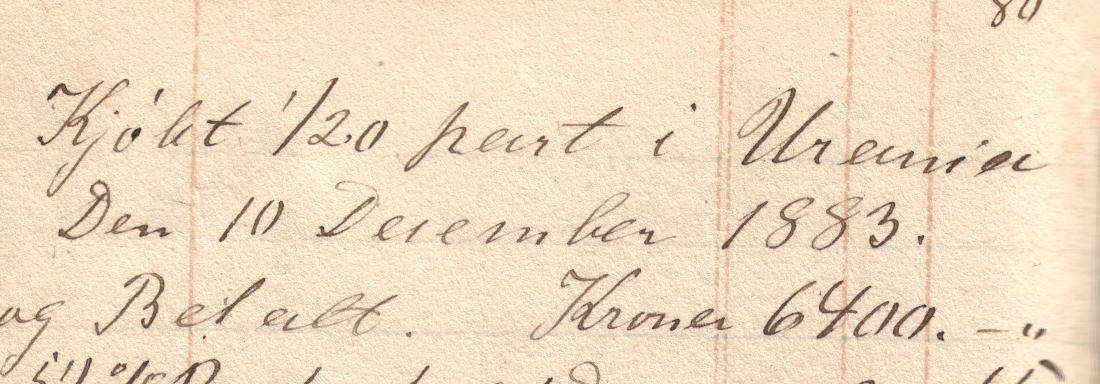 80
Kjóbt 1/20 part i Urania
Den 10 December 1883.
og Betalt. Kroner 6400. -"